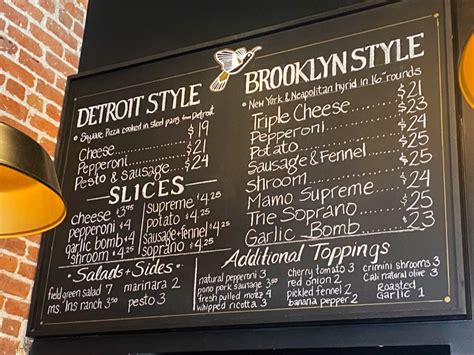 DETROIT STYLE
Square Pizza cooked in steel pans from Detroit
Cheese $19
Pepperoni $21
Pesto & Sausage $24
SLICES
cheese $3.95
pepperoni $4
garlic bomb $4
shroom $4.25
supreme $4.25
potato $4.25
sausage+fennel $4.25
soprano $4.25
Salads + Sides
field green salad 7
ms. Iris ranch 3.50
marinara 2
pesto 3
BROOKLYN STYLE
New York & Neapolitan hyrid in 16" rounds
Triple Cheese $21
Pepperoni $23
Potato
Sausage & Fennel $25
shroom
Mamo Supreme
The Soprano $25
Garlic Bomb 23
Additional Toppings
natural pepperoni 3
pono pork sausage 3.50
fresh pulled mozz 4
whipped ricotta 3
cherry tomato 3
red onion 2
pickled fennel 2
banana pepper 2
crimini shrooms 3
Cali natural olive 3
Roasted
Garlic 1